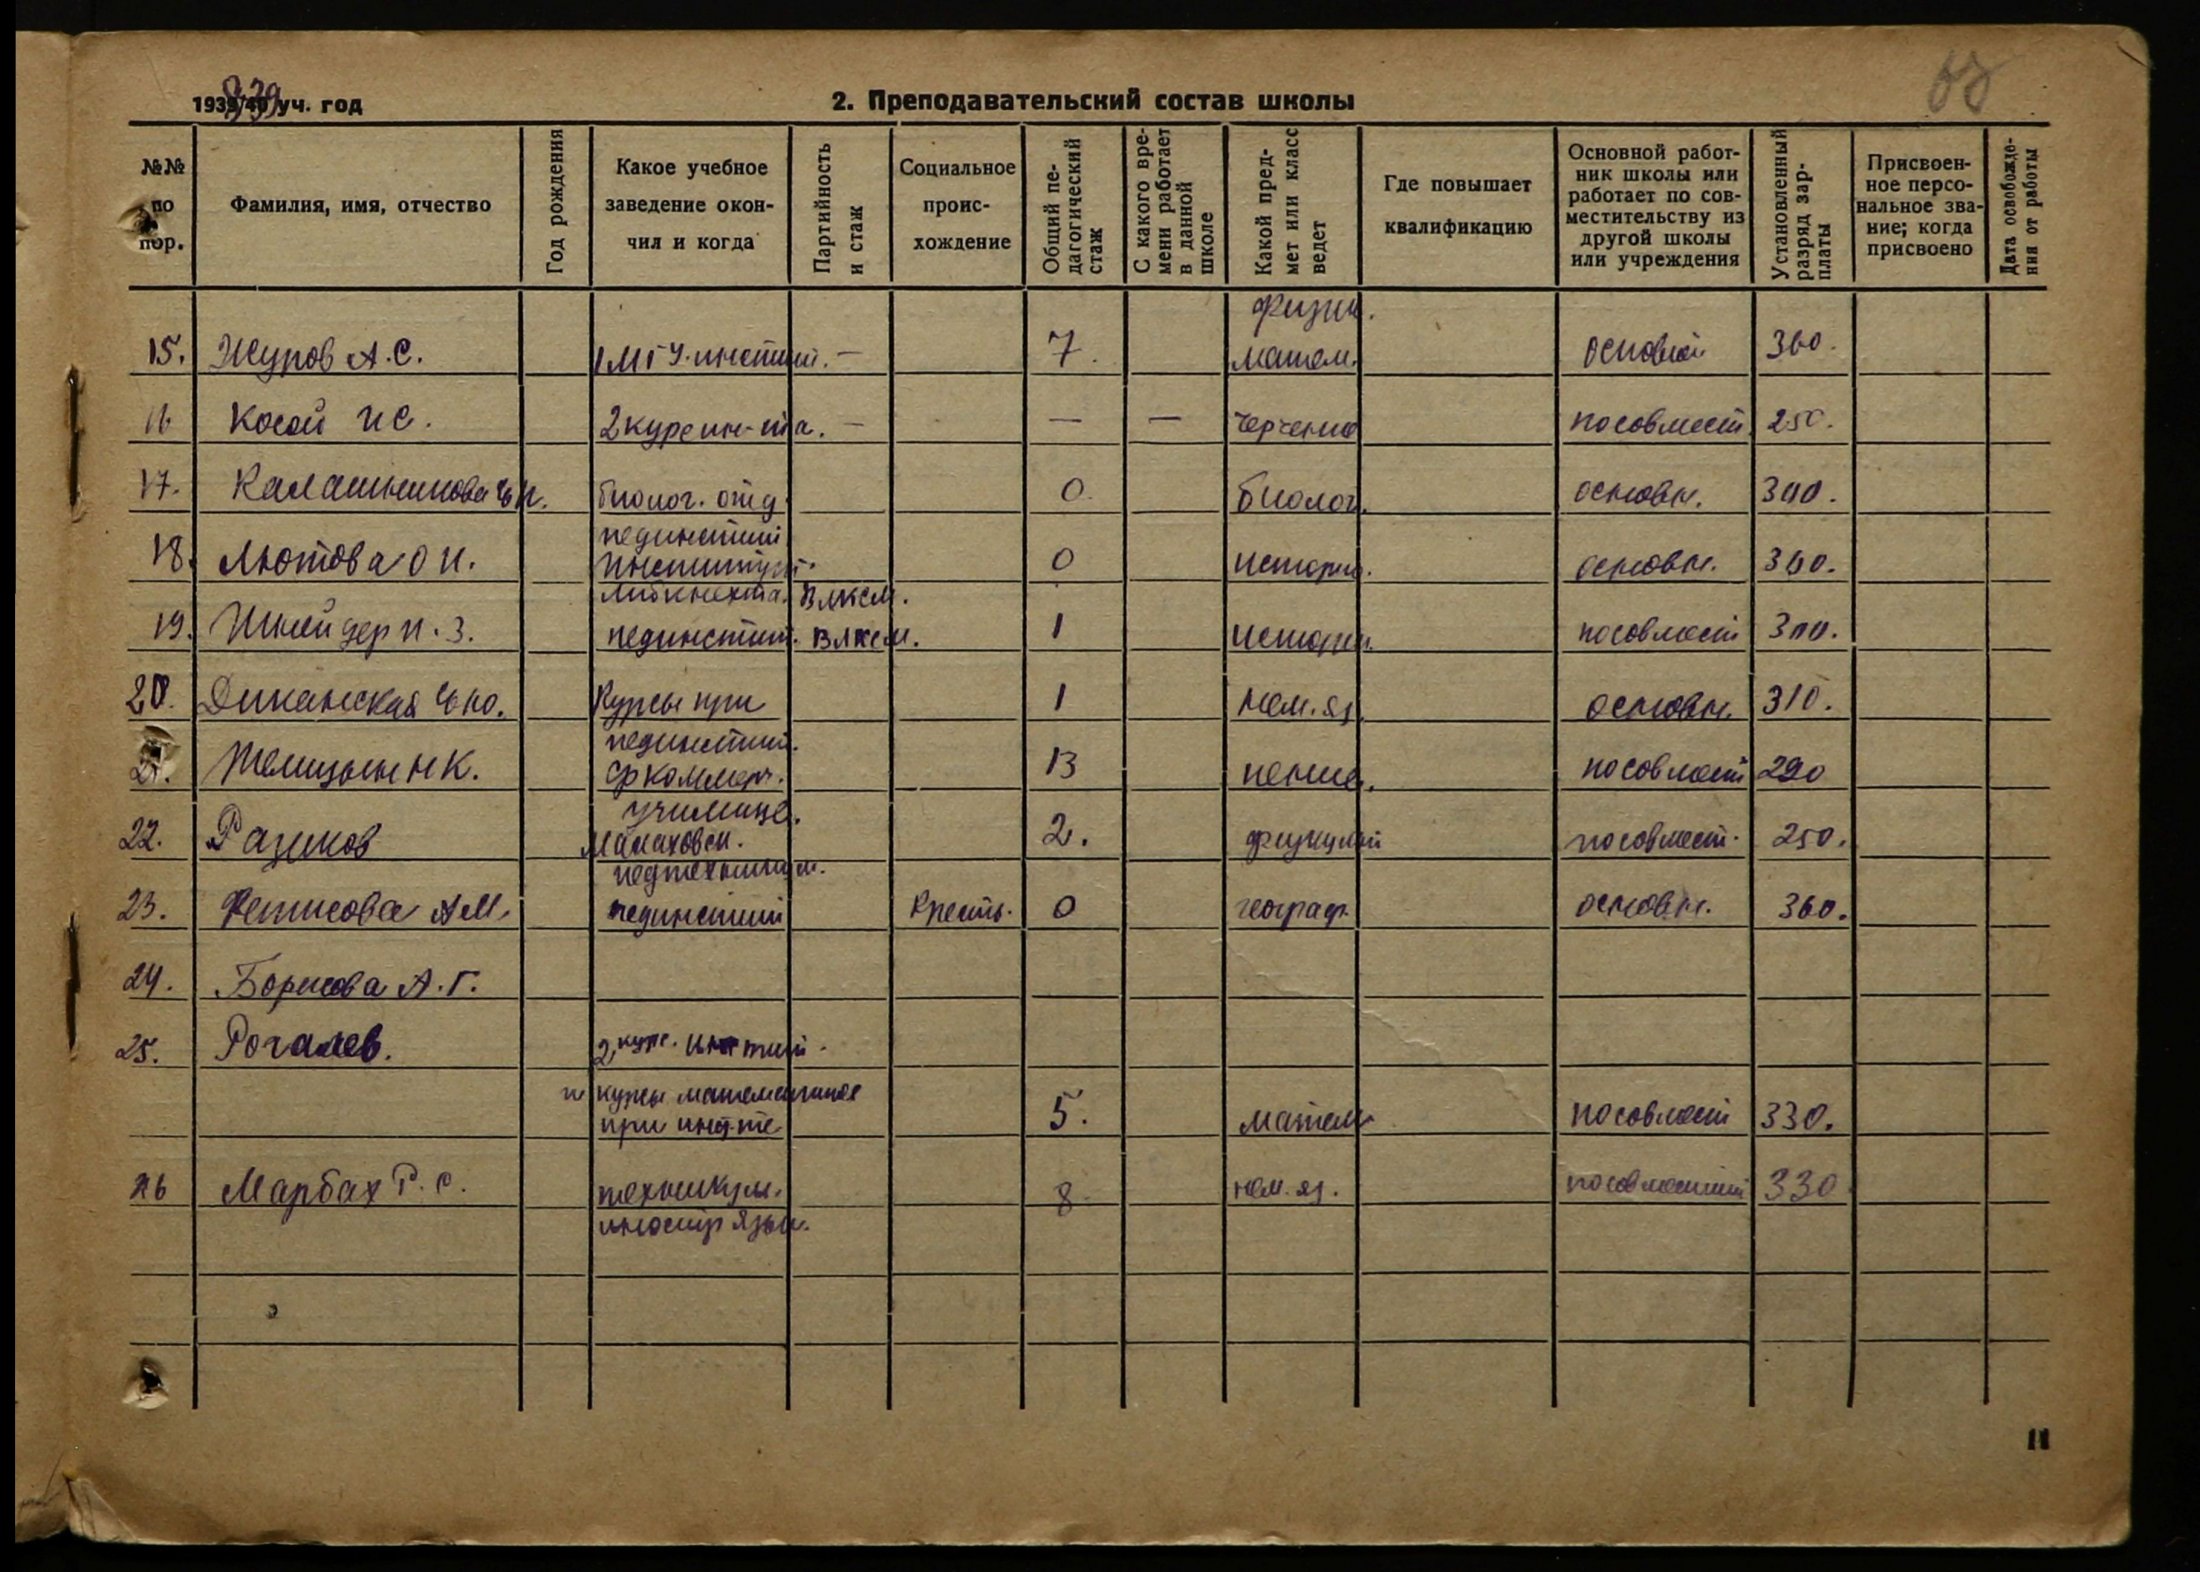 1939/40 уч. год
2. Преподавательский состав школы
№№ по пор.
Фамилия, имя, отчество
Год рождения
Какое учебное заведение окончил и когда
Партийность и стаж
Социальное происхождение
Общий педагогический стаж
С какого времени работает в данной школе
Какой предмет или класс ведет
Где повышает квалификацию
Основной работник школы или работает по совместительству из другой школы или учреждения
Установленный разряд зарплаты
Присвоенное персональное звание; когда присвоено
Дата освобождения от работы
физик.
15. Журов А.С. 1 МГУ. инстит. – 7. матем. основной 360.
16 Косой И С. 2 курс ин-та. – — — черчение по совмест 250.
17. Калашникова И. биолог. отд. 0. биолог. основн. 300.
пединстит
18. Лютова О И. Институт 0 истори. основн. 360.
Либкнехта. ВЛКСМ.
19. Шнейдер И. З. пединстит. ВЛКСМ. 1 истори. по совмест 300.
20. Диканская Ю. Курсы при 1 нем. яз. основн. 310.
пединстит.
21. Телицын Н К. ср коммерч. 13 пение. по совмест 290
училище.
22. Разиков Малаховск. 2. физкульт по совмест. 250.
педтехникум.
23. Фетисова А М. пединстит Кресть. 0 географ. основн. 360.
24. Борисова А. Г.
25. Рогалев. 2 курс. инстит.
и курсы математиков
при инст-те 5. матем по совмест 330.
26 Марбах Р. С. техникум. 8. нем. яз. по совместит 330
иностр язык.
11